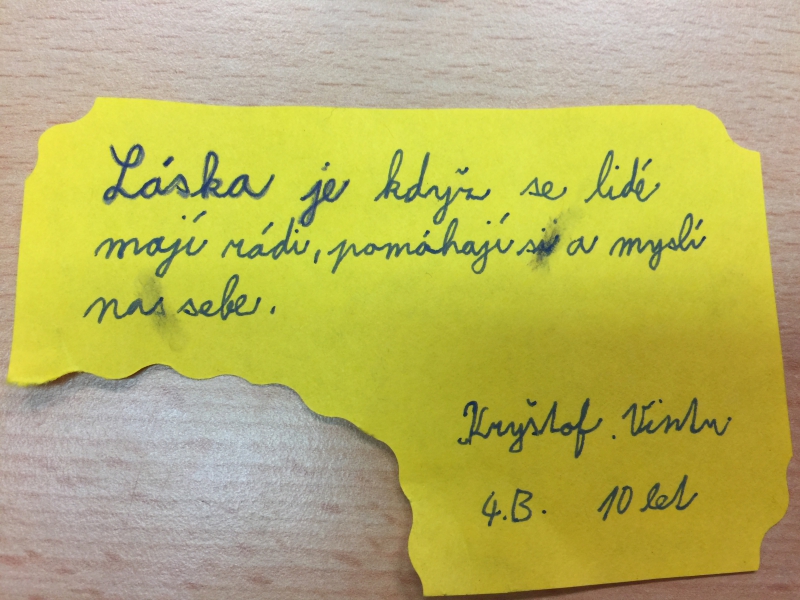 Láska je když se lidé
mají rádi, pomáhají si a myslí
na sebe.
Kryštof
4.B. 10 let